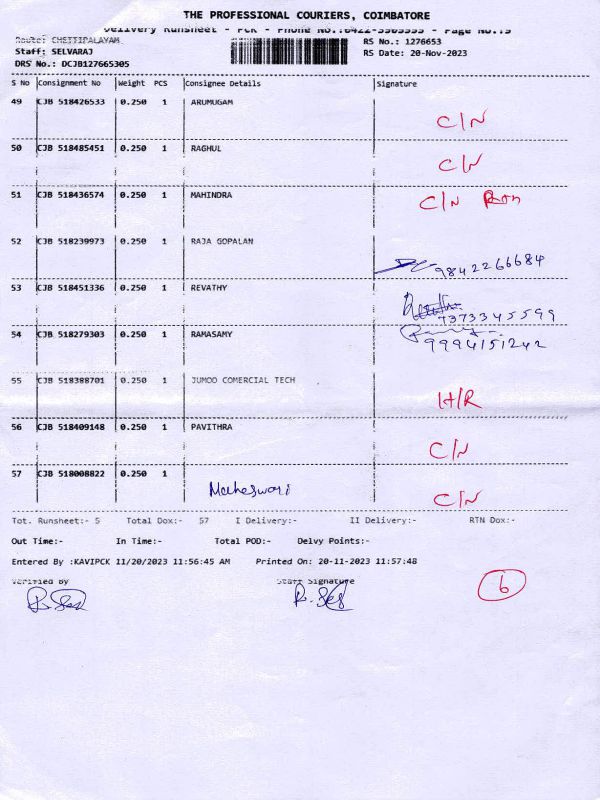 THE PROFESSIONAL COURIERS, COIMBATORE
Delivery Runsheet - PCK - Phone No.:0422-3505555 - Page No.:5
Route: CHETTIPALAYAM RS No.: 1276653
Staff: SELVARAJ RS Date: 20-Nov-2023
DRS No.: DCJB127665305
S No Consignment No Weight PCS Consignee Details Signature
49 CJB 518426533 0.250 1 ARUMUGAM
C/N
50 CJB 518485451 0.250 1 RAGHUL
C/N
51 CJB 518436574 0.250 1 MAHINDRA C/N
52 CJB 518239973 0.250 1 RAJA GOPALAN
9842266684
53 CJB 518451336 0.250 1 REVATHY
7373345599
54 CJB 518279303 0.250 1 RAMASAMY
9994151242
55 CJB 518388701 0.250 1 JUMOO COMERCIAL TECH
H/R
56 CJB 518409148 0.250 1 PAVITHRA
C/N
57 CJB 518008822 0.250 1
Maheswari C/N
Tot. Runsheet:- 5 Total Dox:- 57 I Delivery:- II Delivery:- RTN Dox:-
Out Time:- In Time:- Total POD:- Delvy Points:-
Entered By :KAVIPCK 11/20/2023 11:56:45 AM Printed On: 20-11-2023 11:57:48
Verified By Staff Signature
6